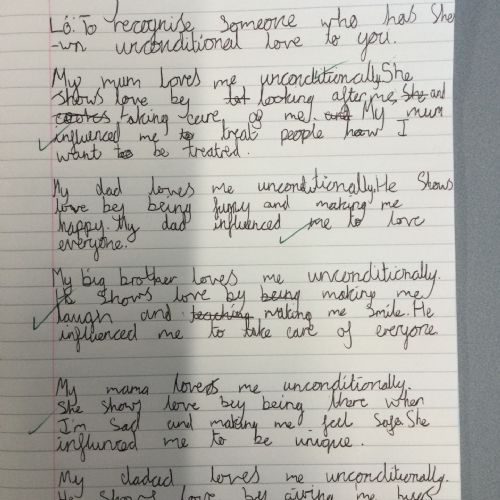 Lo: To recognise someone who has sho
-wn unconditional love to you.
My mum loves me unconditionally. She
shows love by looking after me, and
taking care of me. My mum
influenced me to treat people how I
want to be treated.
My dad loves me unconditionally. He shows
love bey being funny and making me
happy. My dad influenced me to love
everyone.
My big brother loves me unconditionally.
He shows love by being making me
laugh and making me smile. He
influenced me to take care of everyone
My mama loves me unconditionally.
She shows love bey being there when
I'm sad and making me feel safe. She
influnced me to be unique.
My dadad loves me unconditionally.
He shows love by giving me hugs